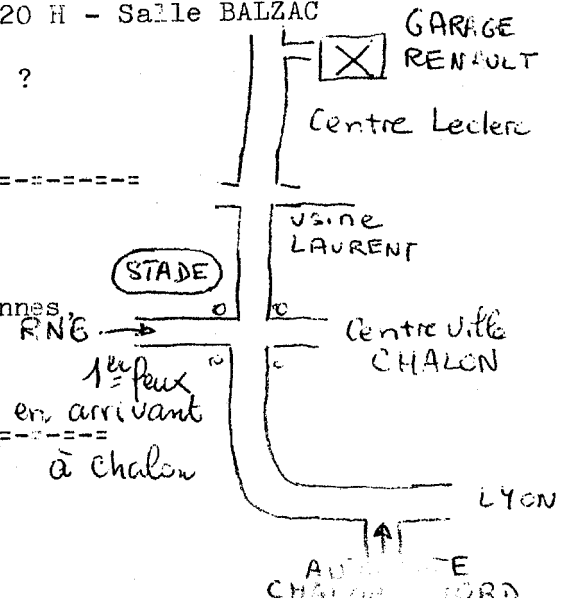 20 H - Salle BALZAC
GARAGE
RENAULT
?
Centre Leclerc
=-=-=-=-=
usine
LAURENT
STADE
nnes,
RN6
Centre Ville
CHALON
1er feux
en arrivant
=-=-=-=
à chalon
LYON
CHALON NORD